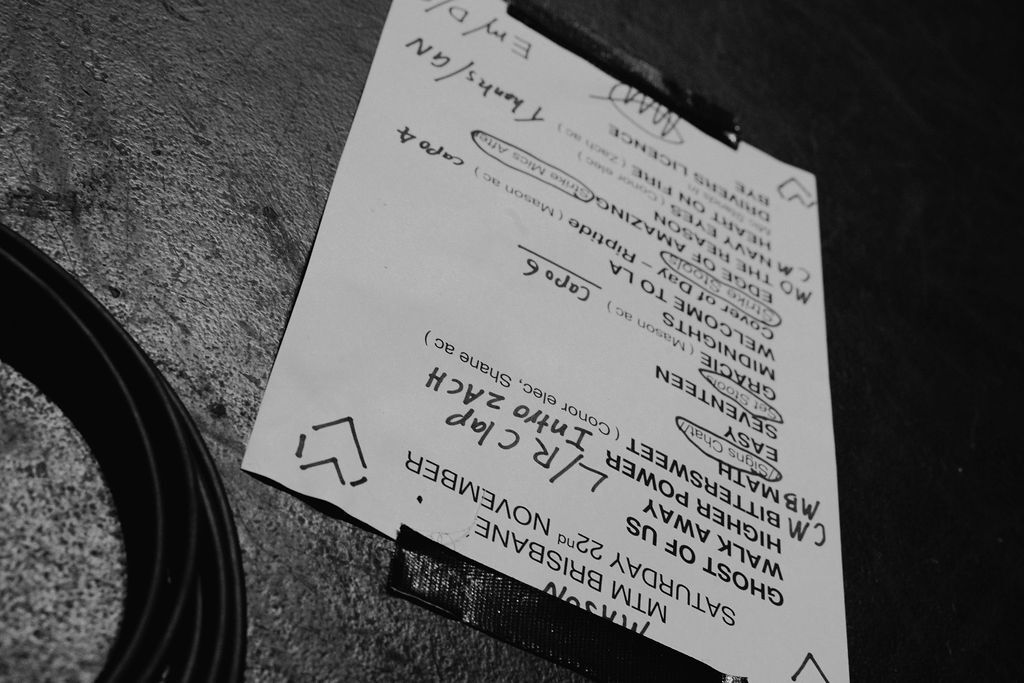 MASON
MTM BRISBANE
SATURDAY 22nd NOVEMBER
GHOST OF US
WALK AWAY
HIGHER POWER L/R Clap
CM BITTERSWEET ( Conor elec, Shane ac ) Intro ZACH
MB MATH
(Signs Chat)
EASY
SEVENTEEN
Set Stools
GRACIE ( Mason ac ) capo 6
MIDNIGHTS
WELCOME TO LA
Cover of Day – Riptide ( Mason ac ) capo 4
Strike Stools
EDGE OF AMAZING Strike Mics After
MD THE REASON
CM NAE HEAVY EYES ( Conor elec )
HEART ON FIRE ( Zach ac )
DRIVERS LICENCE
BYE
Thanks/GN
Em/D/